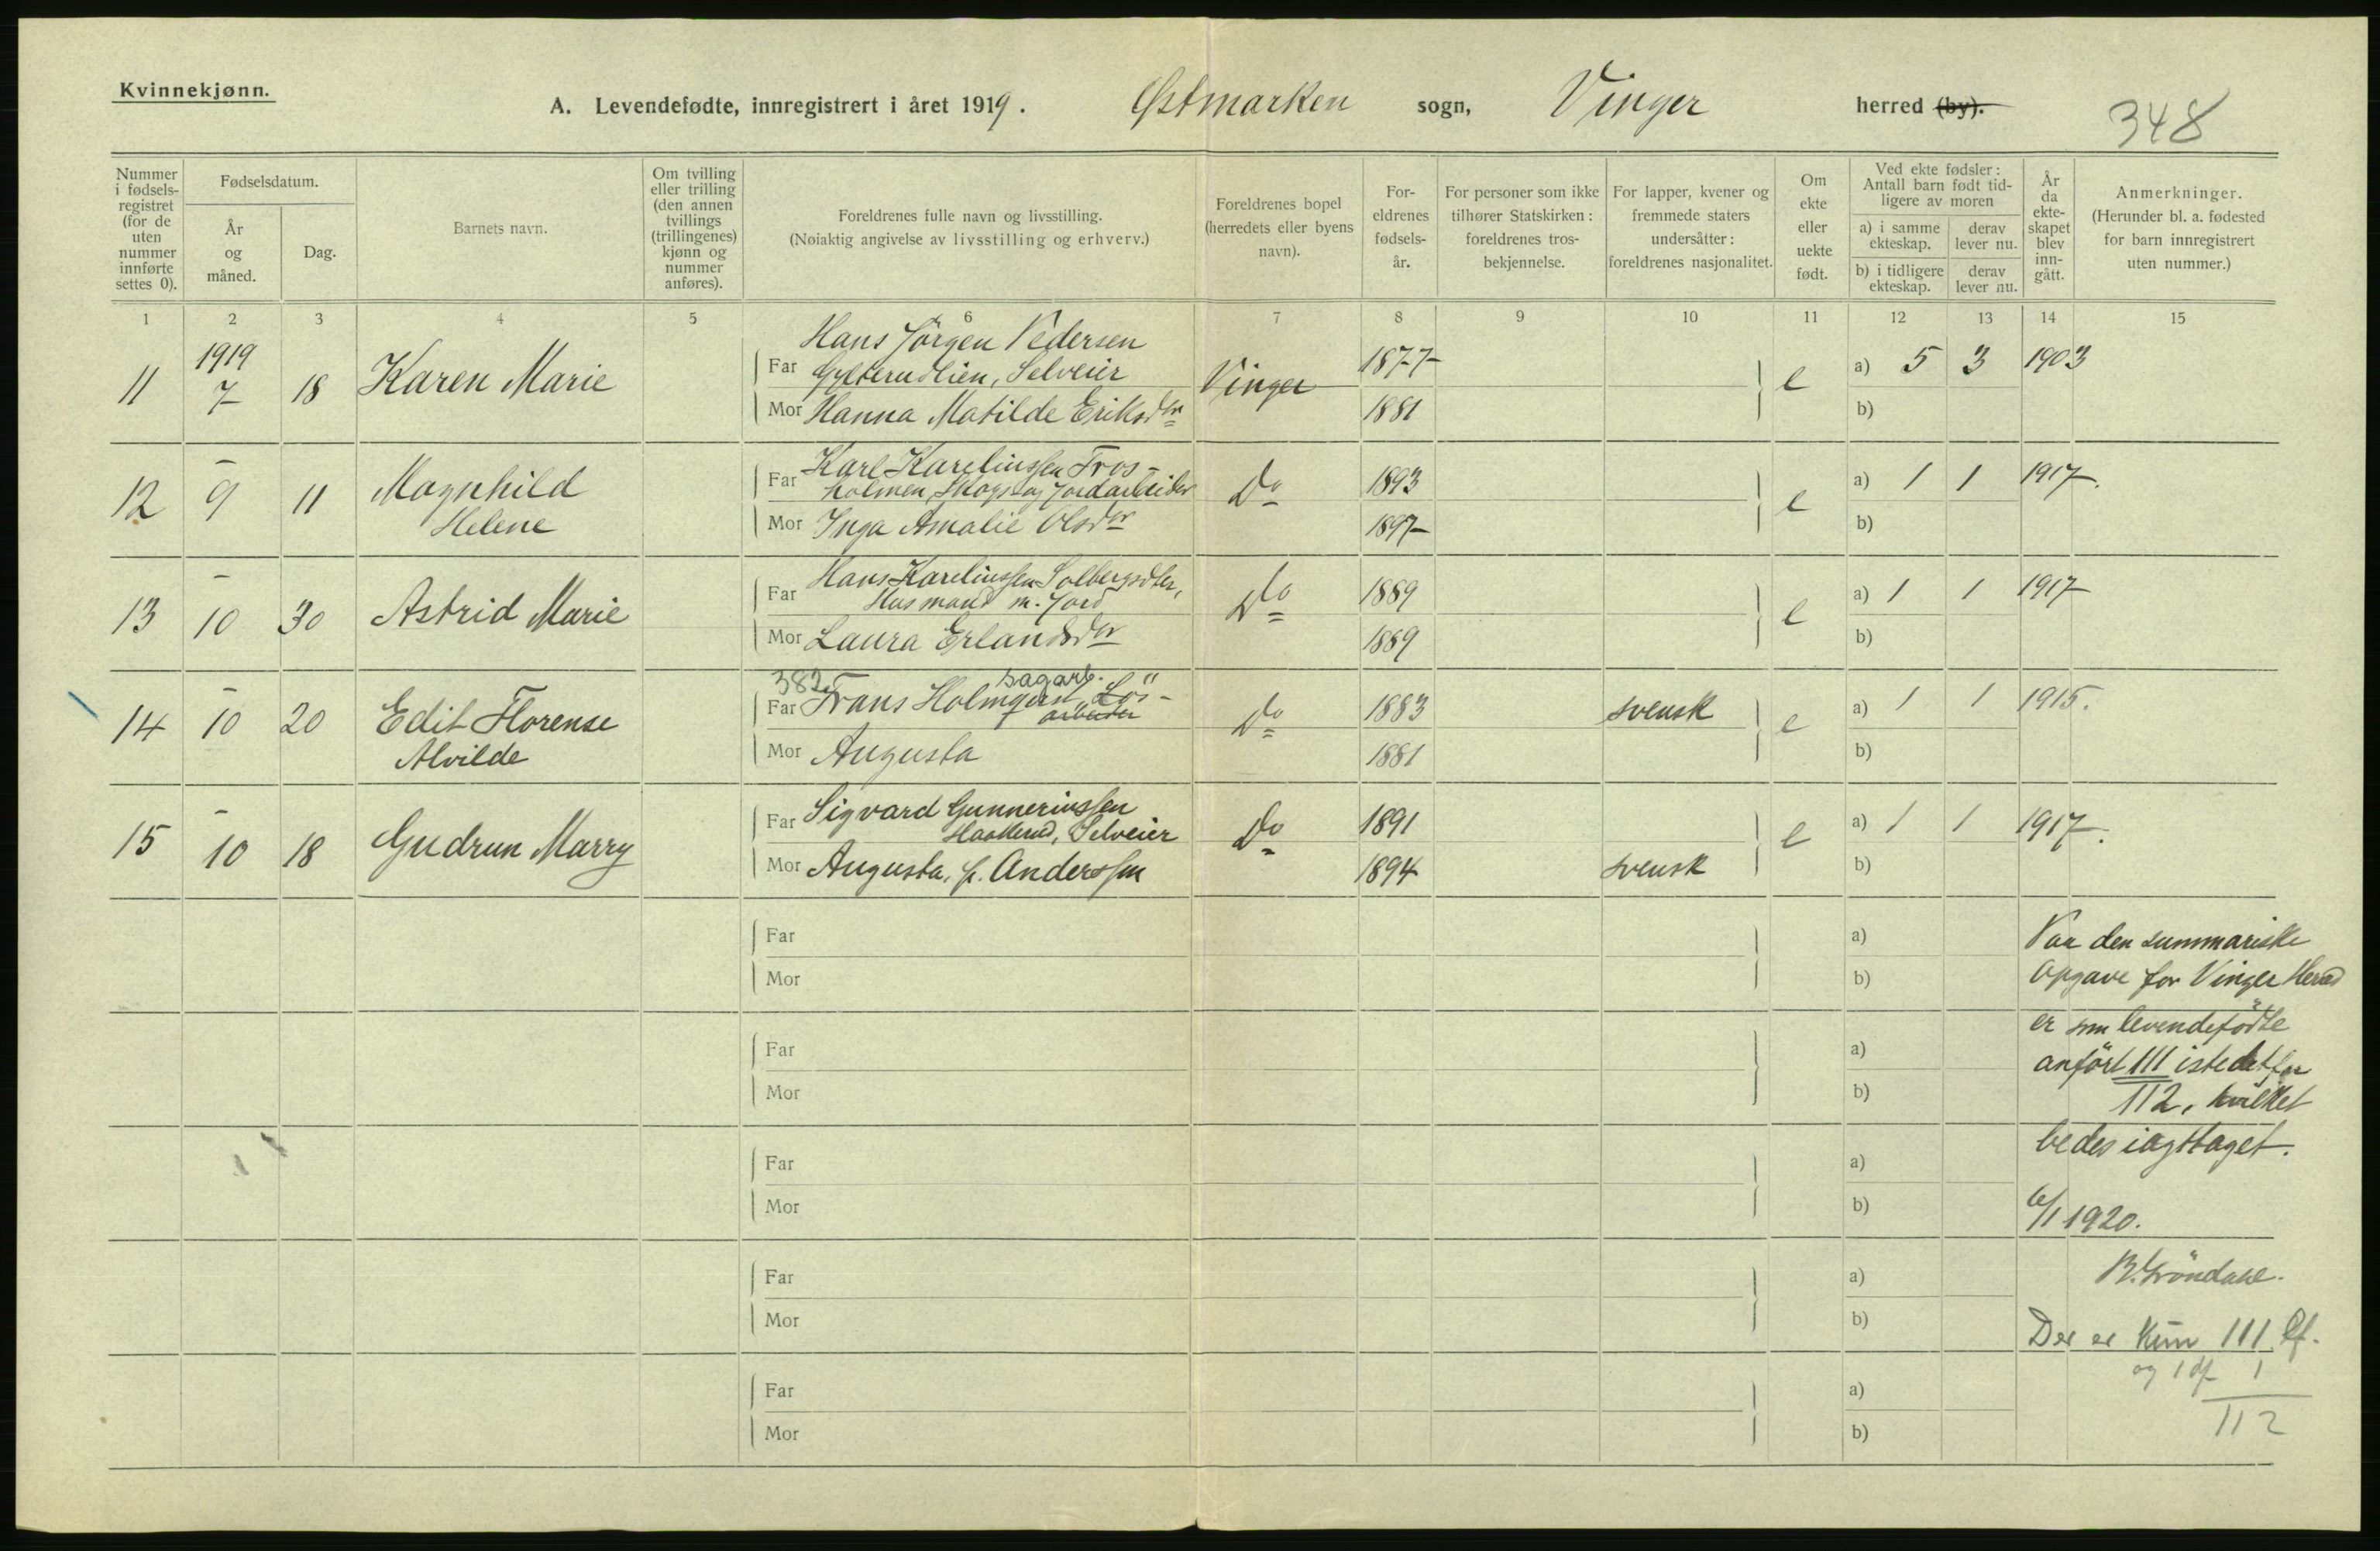 Kvinnekjønn.
A. Levendefødte, innregistrert i året 1919. Østmarken sogn, Vinger herred (by).
348
Nummer i fødsels-registret (for de uten nummer innførte settes 0).
Fødselsdatum.
År og måned.
Dag.
Barnets navn.
Om tvilling eller trilling (den annen tvillings (trillingenes) kjønn og nummer anføres).
Foreldrenes fulle navn og livsstilling.
(Nøiaktig angivelse av livsstilling og erhverv.)
Foreldrenes bopel (herredets eller byens navn).
For-eldrenes fødsels-år.
For personer som ikke tilhører Statskirken: foreldrenes tros-bekjennelse.
For lapper, kvener og fremmede staters undersåtter: foreldrenes nasjonalitet.
Om ekte eller uekte født.
Ved ekte fødsler: Antall barn født tid-ligere av moren
a) i samme ekteskap. derav lever nu.
b) i tidligere ekteskap. derav lever nu.
År da ekte-skapet blev inn-gått.
Anmerkninger.
(Herunder bl. a. fødested for barn innregistrert uten nummer.)
1 2 3 4 5 6 7 8 9 10 11 12 13 14 15
Hans Jörgen Pedersen
11 1919 7 18 Karen Marie Far Gylterudlien, Selveier Vinger 1877 e a) 5 3 1903
Mor Hanna Matilde Eriksdtr 1881 b)
Karl Karelinssen Fros-
12 – 9 11 Magnhild Far holmen, Skogs og Jordarbeider Do 1893 e a) 1 1 1917.
Helene Mor Inga Amalie Olsdtr 1897 b)
Hans Karelinssen Solbergsdter,
13 – 10 30 Astrid Marie Far Husmand m. Jord Do 1889 e a) 1 1 1917
Mor Laura Erlandsdtr 1889 b)
382 sagarb.
14 – 10 20 Edit Florense Far Frans Holmgren, Lös-arbeider Do 1883 svensk e a) 1 1 1915.
Alvilde Mor Augusta 1881 b)
15 – 10 18 Gudrun Marry Far Sigvard Gunnerinssen Do 1891 e a) 1 1 1917.
Haakerud, Selveier
Mor Augusta, f. Anderssen 1894 svensk b)
Far a)
Mor b)
Far a)
Mor b)
Far a)
Mor b)
Far a)
Mor b)
Far a)
Mor b)
Paa den summariske
Opgave for Vinger Herred
er som levendefödte
anfört 111 istedetfor
112, hvilket
bedes iagttaget.
6/1 1920.
B. Gröndahl.
Der er kun 111 lf.
og 1 df 1
112